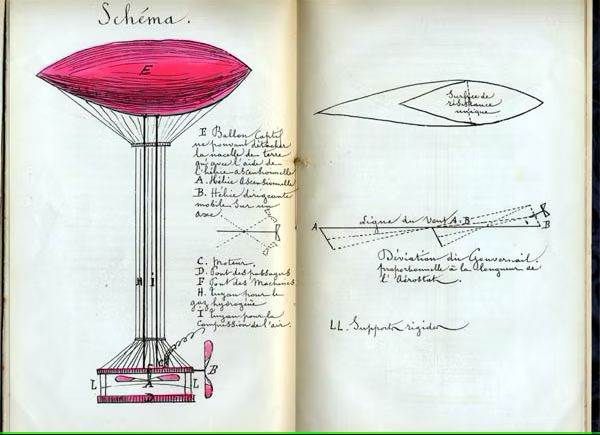 Schéma.
E
E Ballon Captif
ne pouvant détacher
la nacelle de terre
qu'avec l'aide de
l'hélice ascensionnelle
A. Hélice Ascensionnelle
B. Hélice dirigeante
mobile sur un
axe.
C. Moteur.
D. Pont des passagers
F Pont des Machines
H. Tuyau pour le
gaz hydrogène
I Tuyau pour la
Compression de l'air.
H I
B
L A L
D
Surface de
résistance
unique
A Ligne du Vent A.B. B
Déviation du Gouvernail.
proportionnelle à la longueur de
l'Aérostat.
LL. Supports rigides